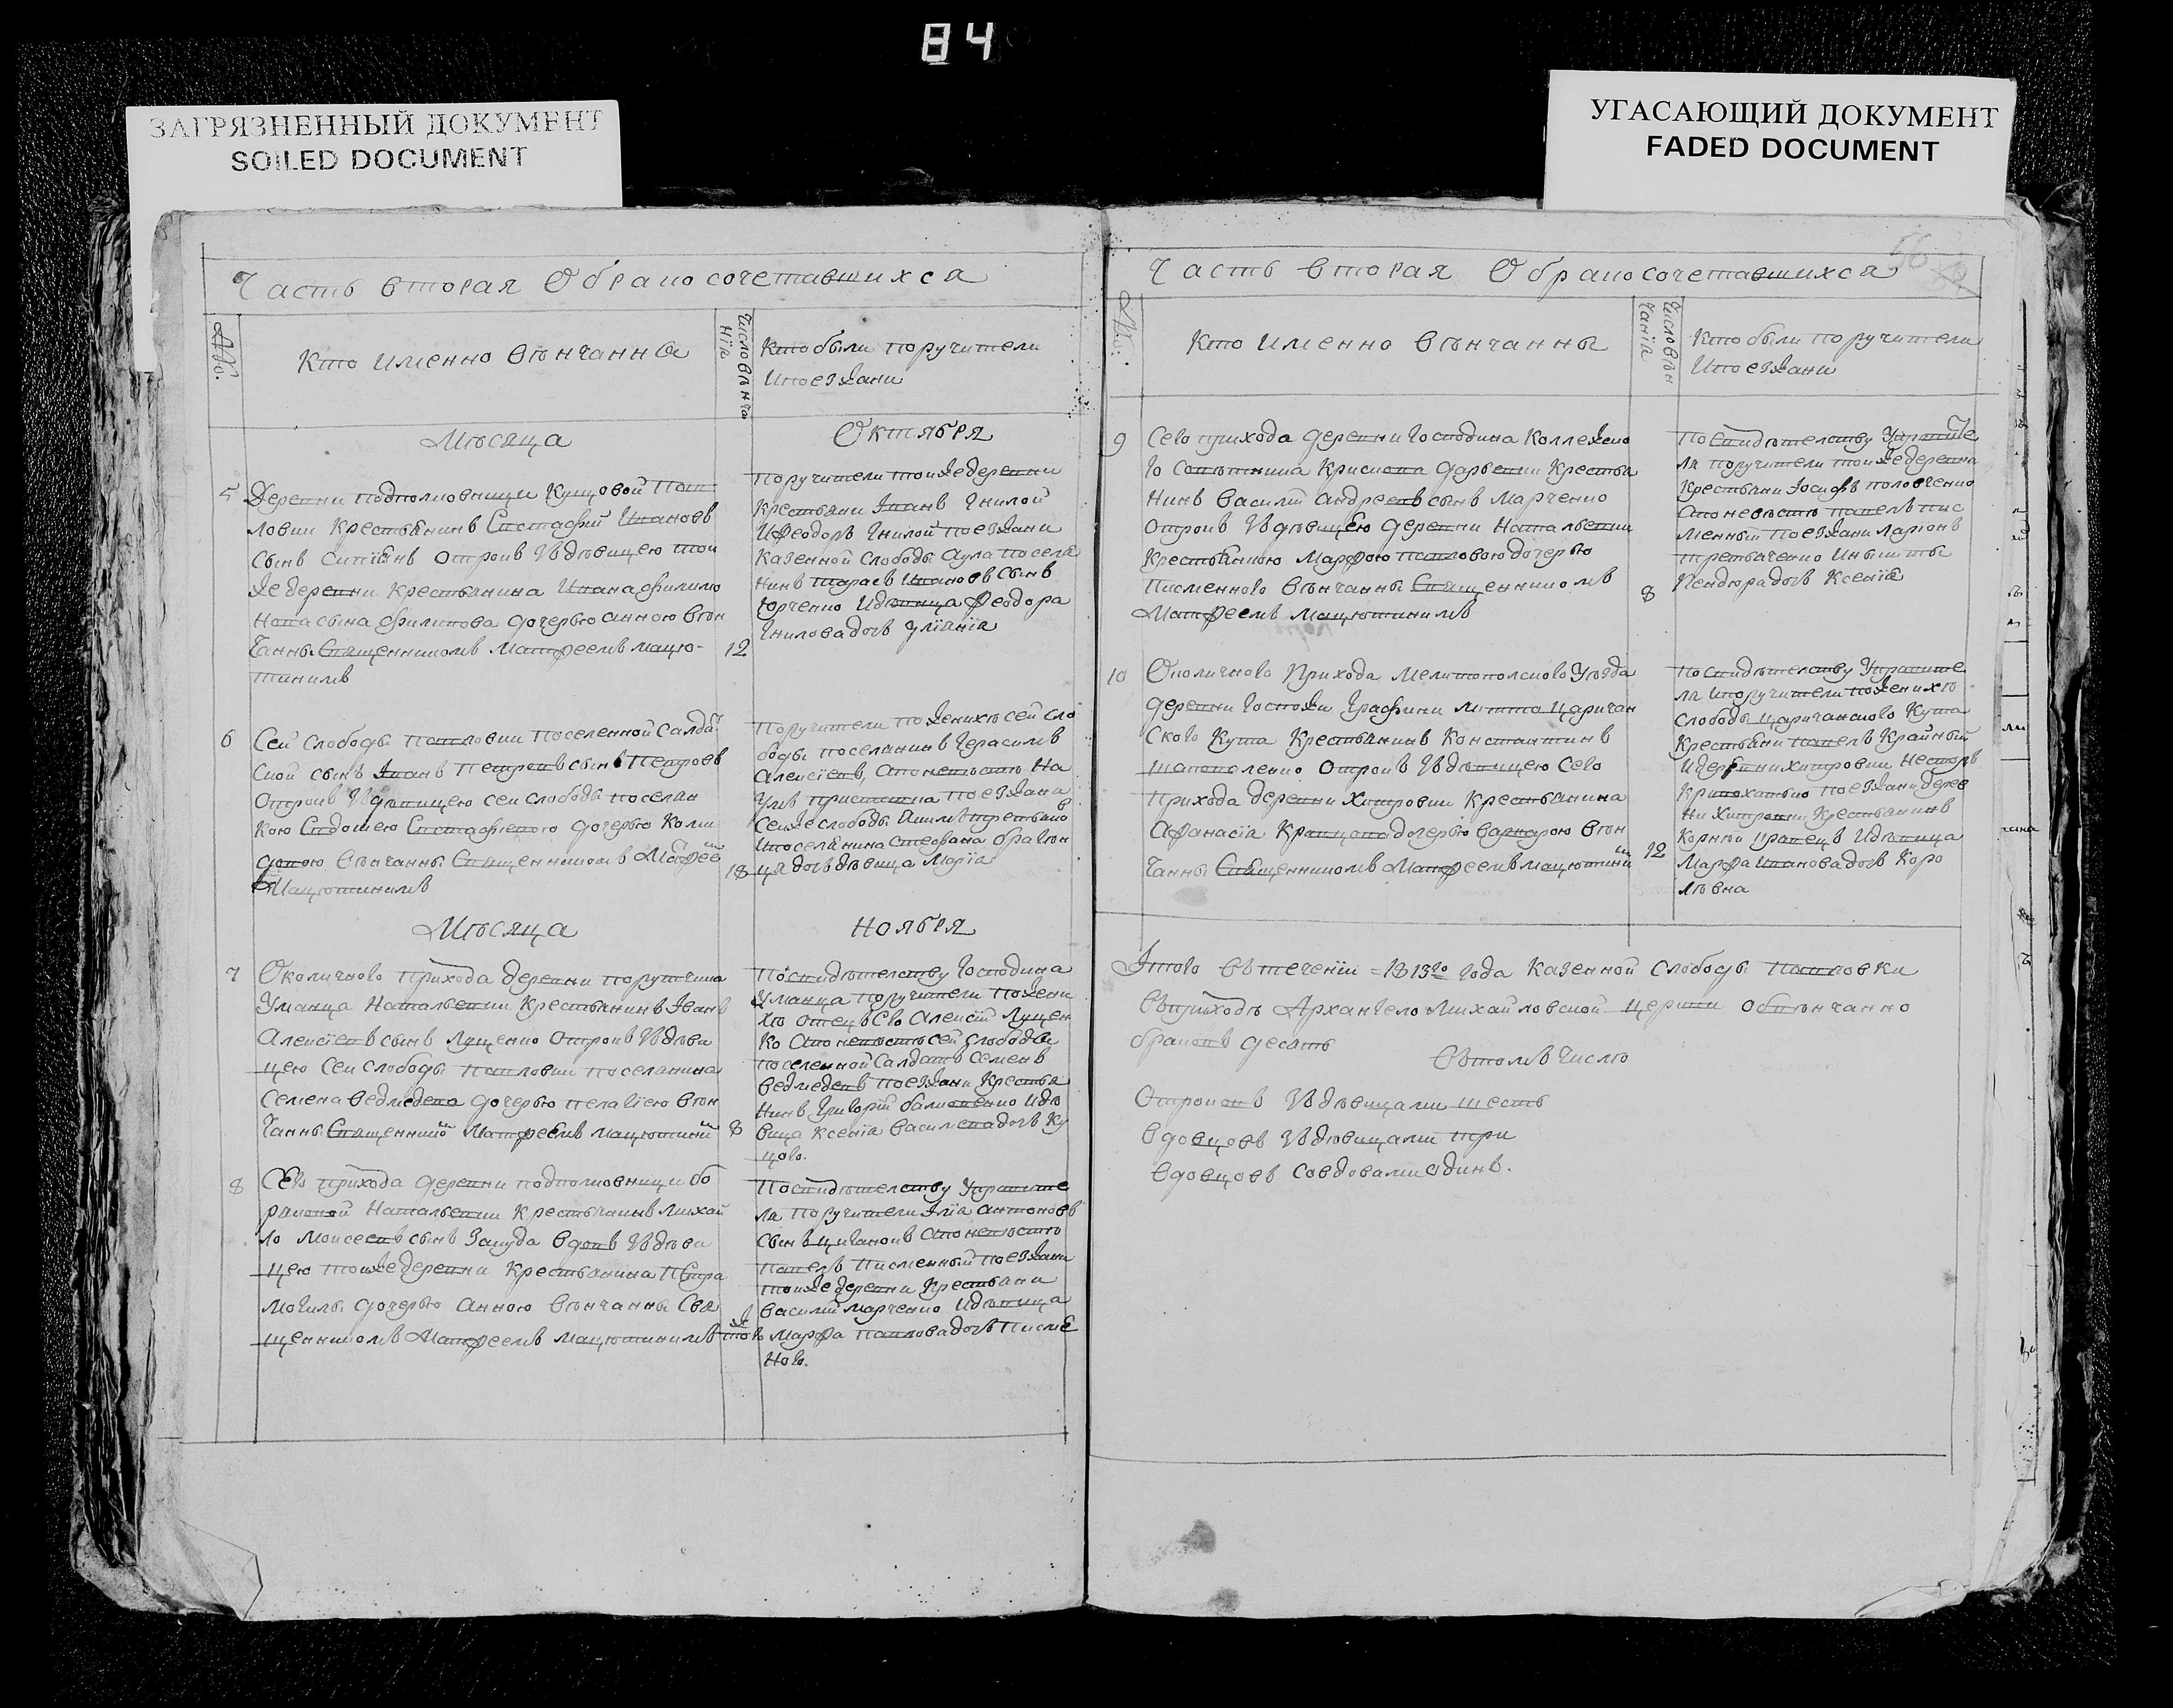 84
ЗАГРЯЗНЕННЫЙ ДОКУМЕНТ
SOILED DOCUMENT
УГАСАЮЩИЙ ДОКУМЕНТ
FADED DOCUMENT
Часть вторая О бракосочетавшихся
№.
Кто именно венчанны
Число венча
нїя
Кто были поручители
и поезжани
Месяца
Октября
5
Деревни подполковници Кущовой Пав
ловки крестьянинъ Евстафий Ивановъ
сынъ Отрокъ з девицею тои
же деревни крестьянина Ивана Филипо
сына Филипова дочерью Анною вен
чанны Священникомъ Матфеемъ Мацю-
тинимъ
12
Поручители тои же деревни
крестьяни Иванъ Гнилой
и Феодоръ Гнилой поезжани
казенной слободы поселя
нинъ Тарасъ Ивановъ сынъ
Юрченко и девица Феодора
Гнилова дочь Улїанїя
6
Сей слободы Павловки поселенной салдат
ской сынъ Иванъ Петровъ сынъ Петровъ
Отрокъ з девицею сей слободы поселян
кою Евдокїею Евстафїевою дочерью
венчанны Священникомъ Матфее
Мацютинимъ
18
Поручители по женихе сей сло
боды поселянинъ Герасимъ
Алексїевъ, а по невесте На
умъ поезжани
сей же слободы
и поселянина Стефана
ця дочь девица Марїя
Месяца
Ноября
7
Околичного прихода деревни порутчика
Уманца Натальевки крестьянинъ Іванъ
Алексїевъ сынъ Луценко Отрокъ з деви
цею сей слободы Павловки поселянина
Семена Ведмедева дочерью Пелагїею вен
чанны Священникомъ Матфеемъ Мацютиним
8
По свидетелству Господина
Уманца поручители по жени
хе отецъ его Алексїй Луцен
ко а по невесте сей слободы
поселенной салдатъ Семенъ
Ведмедевъ поезжани крестья
нинъ Григорїй и де
вица Ксенїя Василева дочь Ку
цого.
8
Сего прихода деревни подполковници Бо
Натальевки крестьянинъ Михай
ло Моисеевъ сынъ Закуда вдовъ з деви
цею той же деревни крестьянина Петра
Могилы дочерью Анною венчанны Свя
щенникомъ Матфеемъ Мацютинимъ
По свидетелству Управите
ля поручители Ілїя Антоновъ
сынъ Циганокъ а по невесте
Павелъ Писменный поезжани
той же деревни крестьяни
Василий Марченко и девица
Марфа Павлова дочь Писме
ного.
Часть вторая О бракосочетавшихся
56
№:
Кто именно венчанны
Число вен
чанїя
Кто были поручители
и поезжани
9
Сего прихода деревни Господина Коллежско
го Советника Дарьевки крестья
нинъ Василий Андреевъ сынъ Марченко
Отрокъ з девицею деревни Натальевки
крестьянкою Марфою Павловою дочерью
Писменного венчанны Священникомъ
Матфеемъ Мацютинимъ
8
По свидетелству Управите
ля поручители той же деревни
крестьяни Іосифъ Половченко
а по невесте Павелъ Пис
менный поезжани Ларіонъ
Третьяченко и
Кендюра дочь Ксенїя
10
Околичного прихода Мелитополского Уезда
деревни Госпожи Графини Царичан
ского Кута крестьянинъ Константинъ
Шаповаленко Отрокъ з девицею сего
прихода деревни Хитровки крестьянина
Афанасїя Кравцова дочерью Варварою вен
чанны Священникомъ Матфеемъ Мацютиним
12
По свидетелству Управите
ля и поручители по женихе
слободы Царичанского Кута
крестьяни Павелъ Крайный
и деревни Хитровки Несторъ
поезжани дерев
ни Хитровки крестьянинъ
Корній и девица
Марфа Иванова дочь Коро
левна
Итого въ теченїи 1813го года казенной слободы Павловки
въ приходе Архангело Михайловской церкви обвенчанно
браковъ десять
въ томъ числе
Отроковъ з девицами шесть
вдовцовъ з девицами три
вдовцовъ со вдовами одинъ.